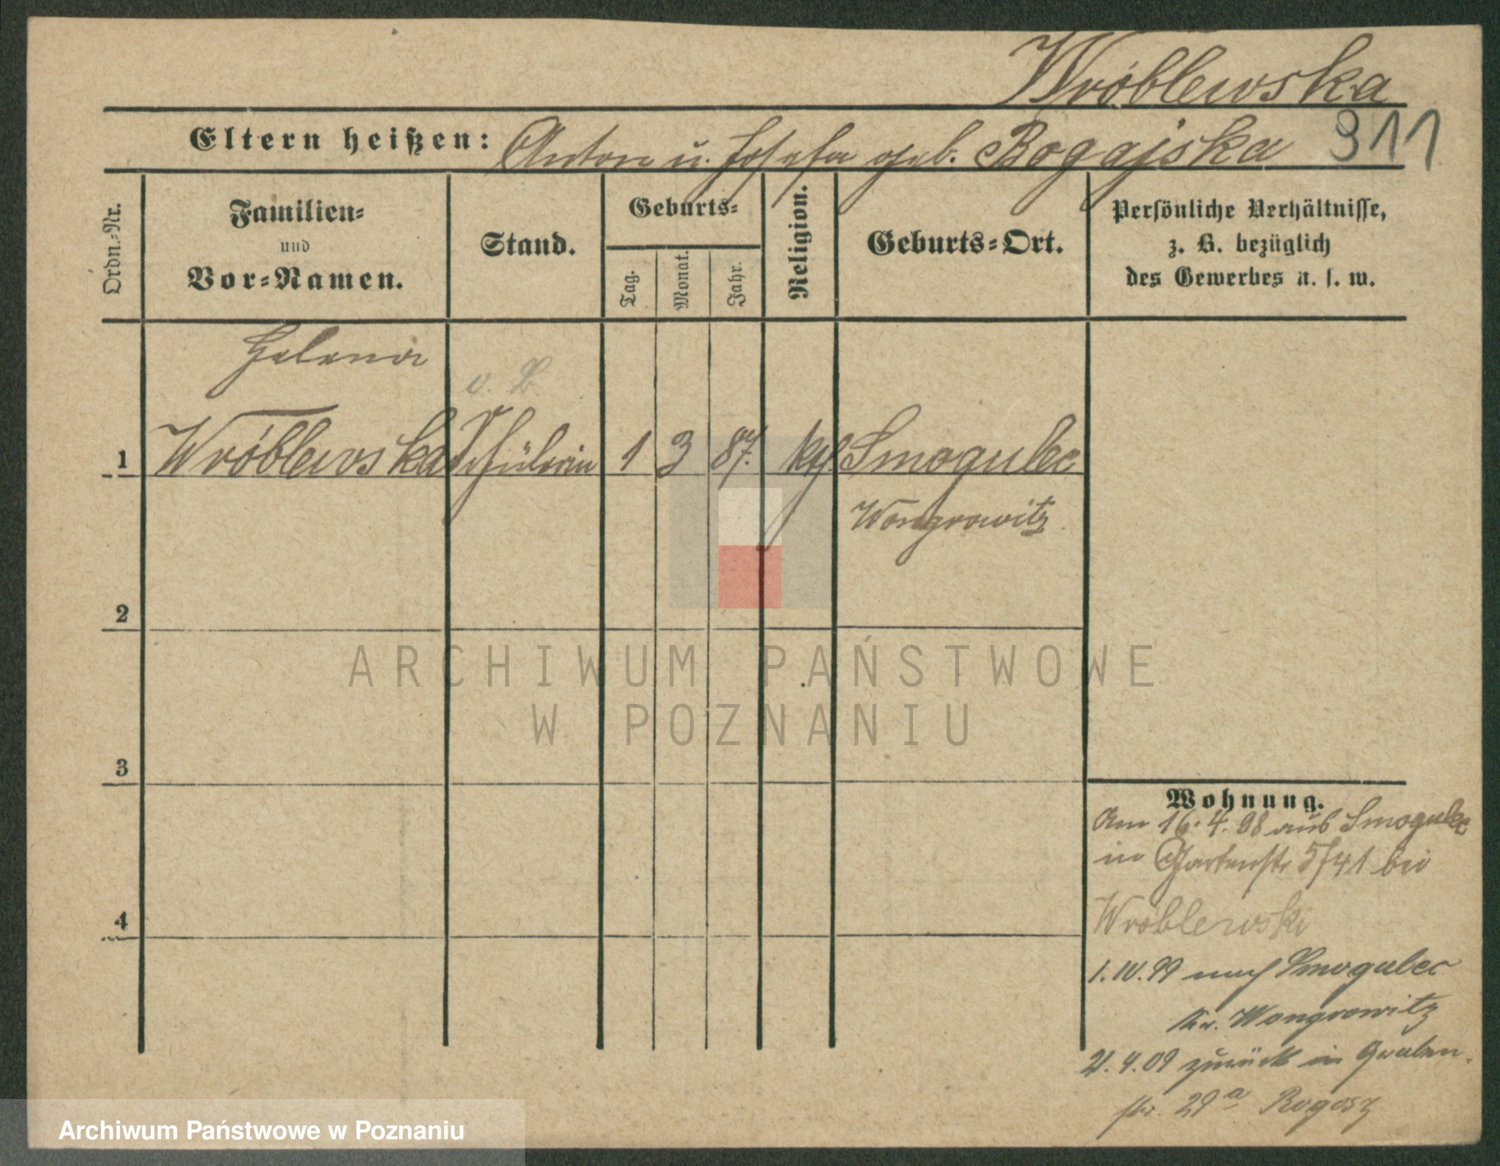 Wróblewska
Eltern heißen: Anton u. Josefa geb. Bogajska 311
Ordn.-Nr.
Familien-
und
Vor-Namen.
Stand.
Geburts-
Tag.
Monat.
Jahr.
Religion.
Geburts-Ort.
Persönliche Verhältnisse,
z. B. bezüglich
des Gewerbes u. s. w.
Helena
1 Wróblewska Schülerin 1 3 87. kath. Smogulec
Wongrowitz
2
3
4
Wohnung.
Am 16.4.98 aus Smogulec
in Gartenstr 5/41 bei
Wróblewski
1.IV.99 nach Smogulec
Kr. Wongrowitz
21.4.09 zurück in Graben-
str. 29a Rogosz
ARCHIWUM PAŃSTWOWE
W POZNANIU
Archiwum Państwowe w Poznaniu